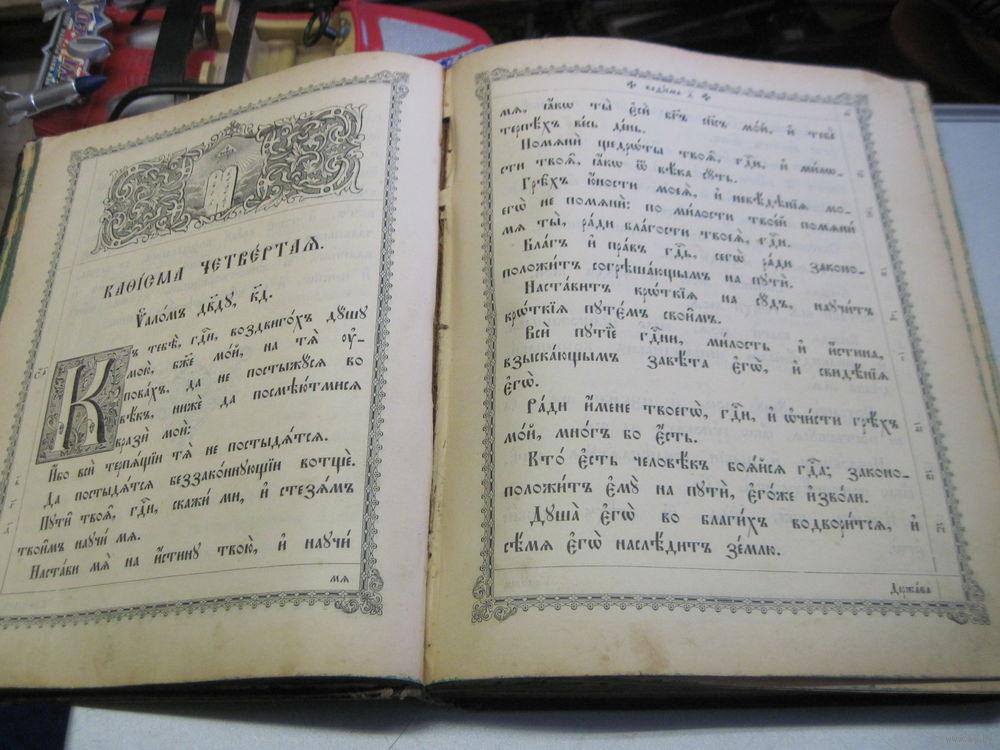 КАѲІ́СМА ЧЕТВЕ́РТАѦ.
Ѱало́мъ дв҃ду, к҃д.
Къ тебѣ̀, гдⷭ҇и, воздвиго́хъ дꙋ́шꙋ
мою̀, бж҃е мо́й, на тѧ̀ ᲂу҆-
пова́хъ, да не постыжꙋ́сѧ во
вѣ́къ, нижѐ да посмѣю́тмисѧ
вразѝ моѝ:
И҆́бо всѝ терпѧ́щїи тѧ̀ не постыдѧ́тсѧ.
Да постыдѧ́тсѧ беззако́ннꙋющїи вотщѐ.
Пꙋти̑ твоѧ̑, гдⷭ҇и, скажи́ ми, и҆ стезѧ́мъ
твои̑мъ наꙋчи́ мѧ.
Наста́ви мѧ̀ на и҆́стинꙋ твою̀, и҆ наꙋчи́
мѧ
каѳі́сма
мѧ, ꙗ҆́кѡ ты̀ є҆сѝ бг҃ъ сп҃съ мо́й, и҆ тебѐ
терпѣ́хъ ве́сь де́нь.
Помѧнѝ щедрѡ́ты твоѧ̑, гдⷭ҇и, и҆ ми́лѡ-
сти твоѧ̑, ꙗ҆́кѡ ѿ вѣ́ка сꙋ́ть.
Грѣ̑хъ ю҆́ности моеѧ̀, и҆ невѣ́дѣнїѧ мо-
егѡ̀ не помѧнѝ: по ми́лости твое́й помѧнѝ
мѧ ты̀, ра́ди бла́гости твоеѧ̀, гдⷭ҇и.
Бл҃гъ и҆ пра́въ гдⷭ҇ь, сегѡ̀ ра́ди законо-
положи́тъ согрѣша́ющымъ на пꙋтѝ.
Наста́витъ крѡ́ткїѧ на сꙋ́дъ, наꙋчи́тъ
крѡ́ткїѧ пꙋтє́мъ свои̑мъ.
Всѝ пꙋтїѐ гдⷭ҇ни, ми́лость и҆ и҆́стина,
взыска́ющымъ завѣ́та є҆гѡ̀, и҆ свидѣ̑нїѧ
є҆гѡ̀.
Ра́ди и҆́мене твоегѡ̀, гдⷭ҇и, и҆ ѡ҆чи́сти грѣ́хъ
мо́й, мно́гъ бо є҆́сть.
Кто̀ є҆́сть человѣ́къ боѧ́йсѧ гдⷭ҇а; законо-
положи́тъ є҆мꙋ̀ на пꙋтѝ, є҆го́же и҆зво́ли.
Дꙋша̀ є҆гѡ̀ во благи́хъ водвори́тсѧ, и҆
сѣ́мѧ є҆гѡ̀ наслѣ́дитъ зе́млю.
Держа́ва